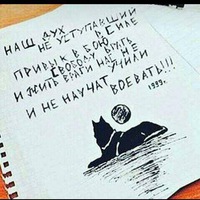 НАШ ДУХ
НЕ УСТУПАВШИЙ
В СИЛЕ
ПРИВЫК В БОЮ
СВОБОДУ БРАТЬ
И ЖИТЬ ВРАГИ НАС НЕ
УЧИЛИ
И НЕ НАУЧАТ ВОЕВАТЬ!!!